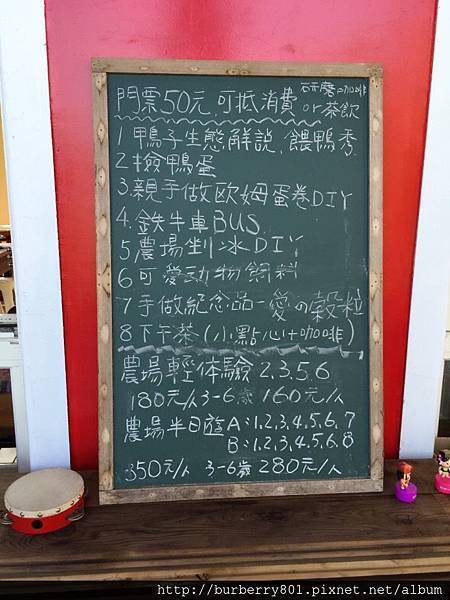 門票50元,可抵消費 研磨咖啡or茶飲
1 鴨子生態解說、餵鴨秀
2 撿鴨蛋
3.親手做歐姆蛋卷DIY
4.鉄牛車BUS
5 農場剉冰DIY
6 可愛动物飼料
7 手做紀念品-愛の穀粒
8 下午茶(小點心+咖啡)
農場輕体驗 2,3,5,6
180元/人 3-6歲 160元/人
農場半日遊 A:1,2,3,4,5,6,7
B:1,2,3,4,5,6,8
350元/人 3-6歲 280元/人
http://burberry801.pixnet.net/album